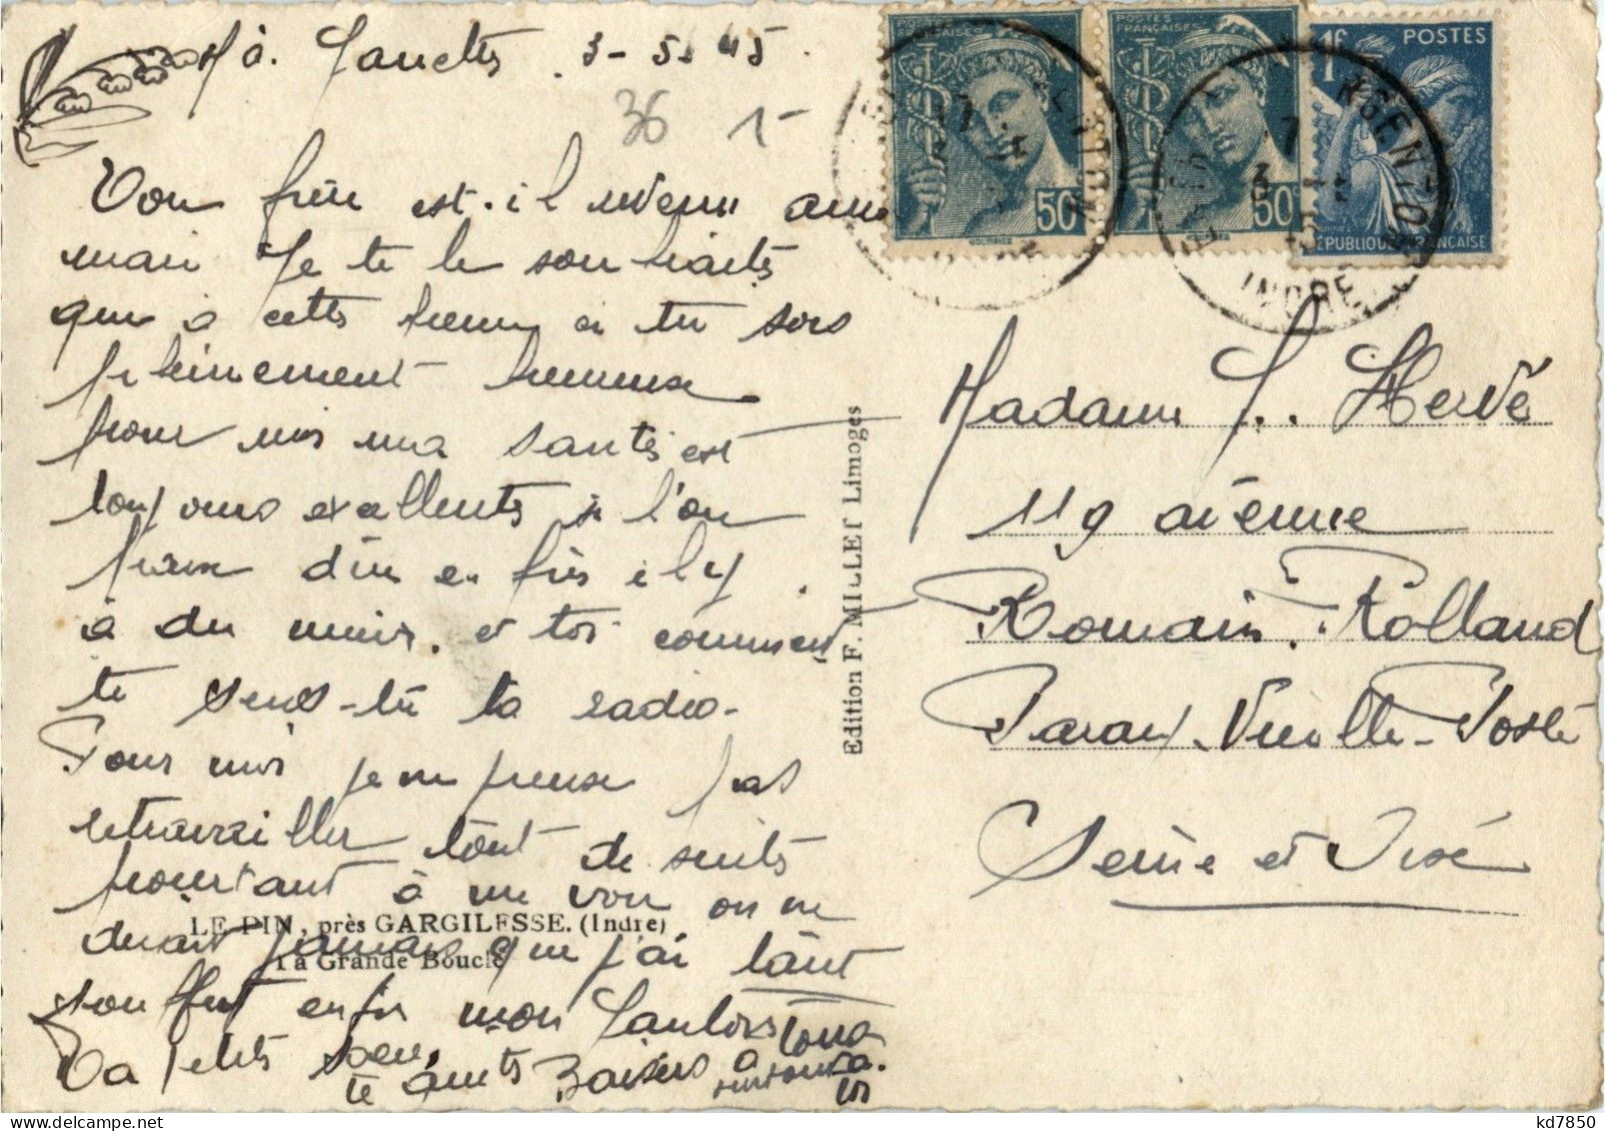 3-5-45
36 1-
POSTES FRANÇAISES
50
POSTES FRANÇAISES
50
1f POSTES
RÉPUBLIQUE FRANÇAISE
ARGENTON
INDRE
Ton frère est-il revenu
mari Je te le souhaite
que à cette heure ci tu sois
pleinement heureuse
pour moi ma santé est
toujours excellente si l'on
peux dire en fin il y
à du mieux. et toi comment
te sens-tu ta radio-
Pour moi je ne pense pas
retravailler tout de suite
pourtant à me voir on ne
dirait jamais que j'ai tant
souffert enfin mon
Ta petite soeur
te Baisers à tous
surtout
LE PIN, près GARGILESSE. (Indre)
La Grande Boucle
Edition F. MILLET Limoges
Madame J.. Hervé
119 avenue
Romain. Rolland
Paray-Vieille-Poste
Seine et Oise
kd7850